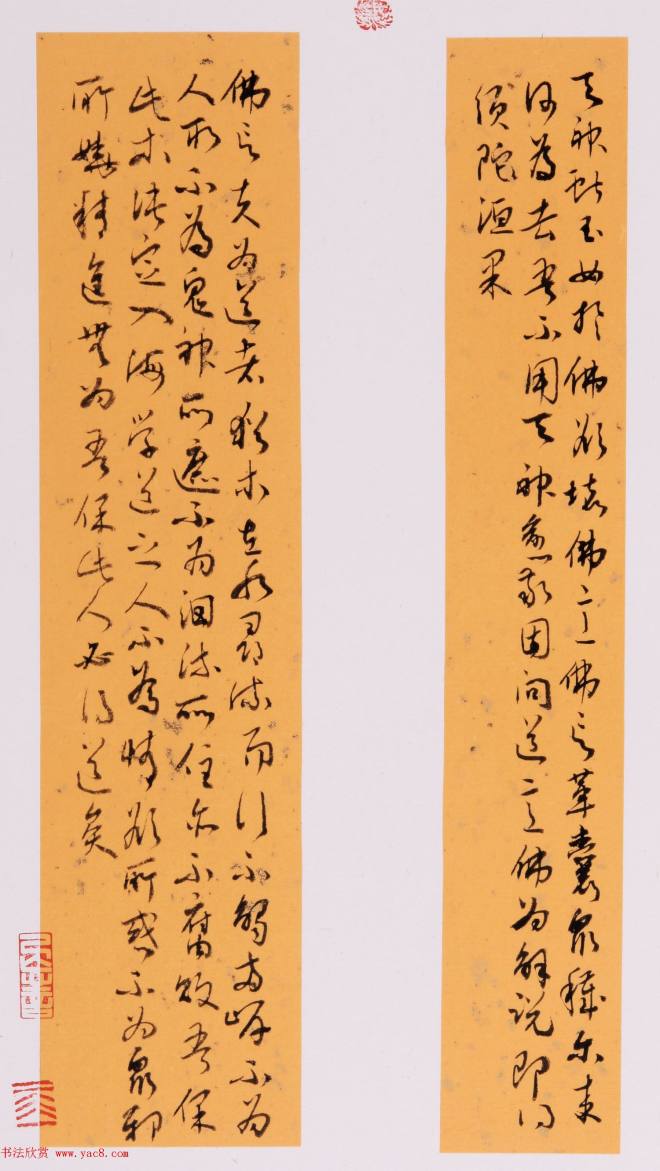 天神献玉女於佛欲壞佛意佛言革囊眾穢尔来
何為去吾不用天神愈敬因问道意佛为解说即得
须陀洹果
佛言夫为道者猶木在水尋流而行不觸两岸不为
人取不為鬼神所遮不为洄流所住亦不腐敗吾保
此木决定入海学道之人不為情欲所惑不为眾邪
所嬈精進無为吾保此人必得道矣
书法欣赏 www.yac8.com